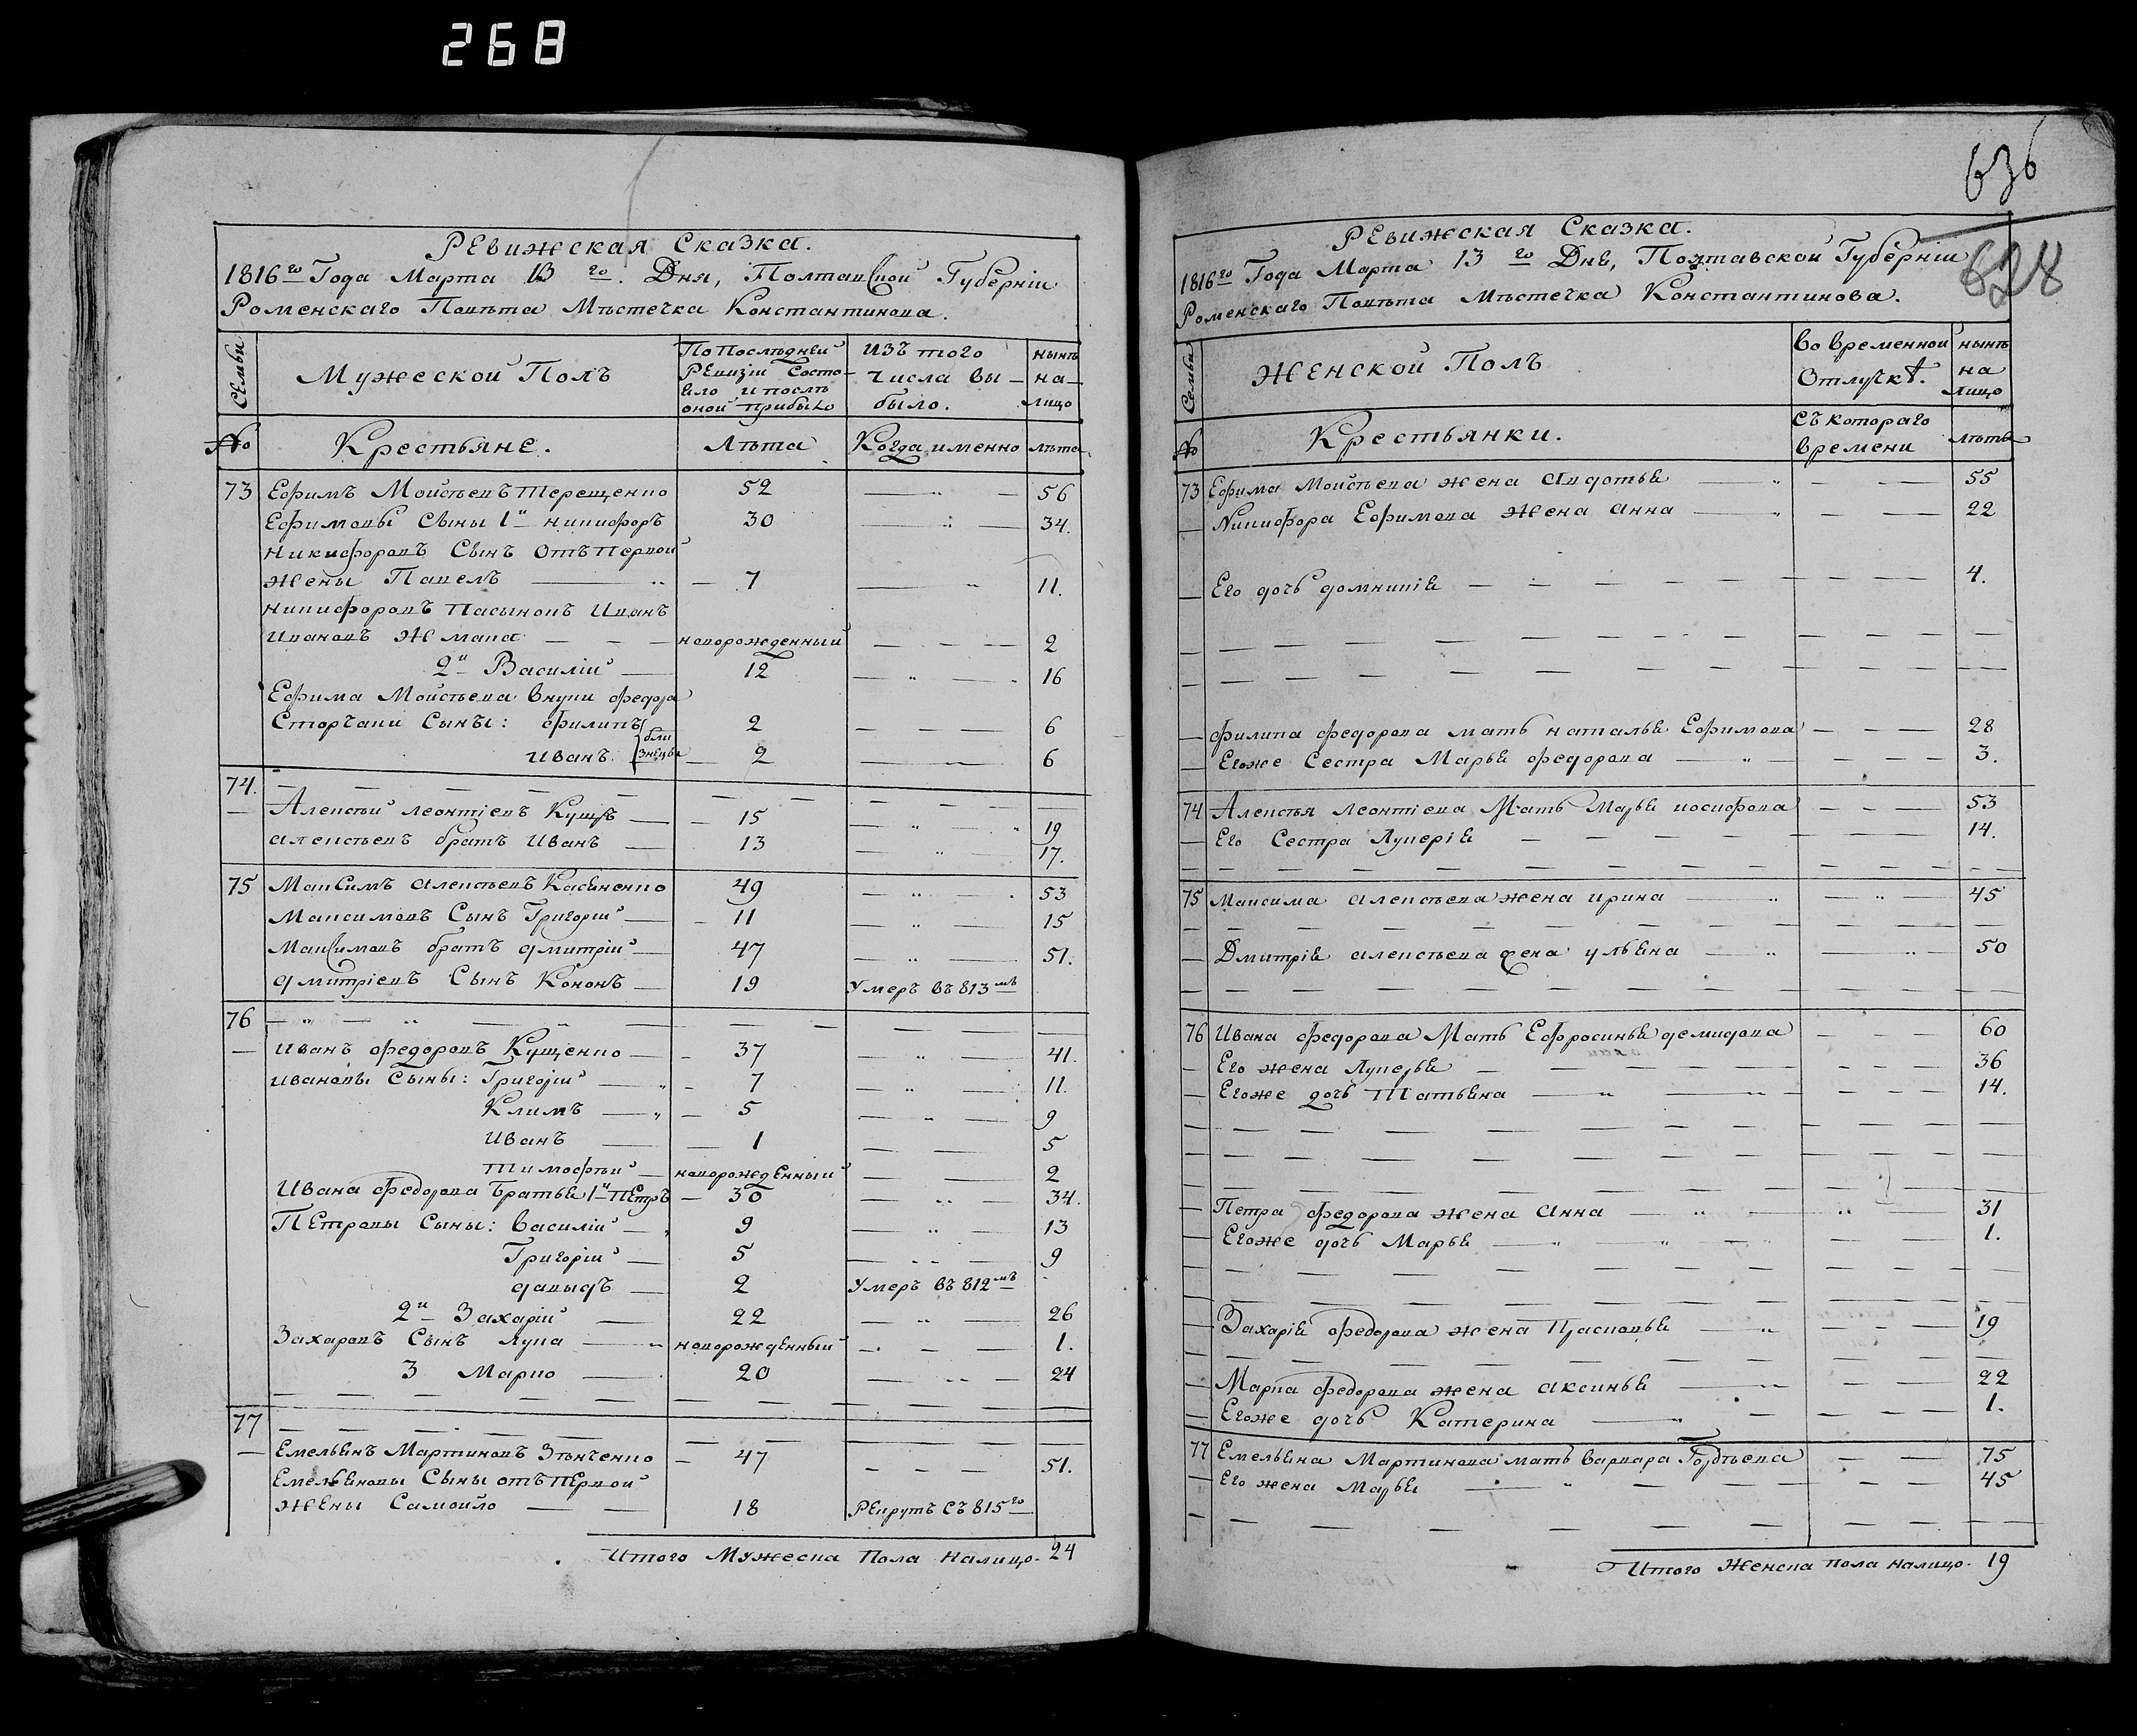 268
636
628
Ревижская Сказка.
1816го Года Марта 13 го. Дня, Полтавской Губерніи
Роменскаго Повѣта Мѣстечка Константинова.
Семьи
Мужеской Полъ
По Послѣдней Ревизіи Состояло и послѣ оной прибыло
Изъ того числа выбыло.
нынѣ на-лицо
№ Крестьяне. Лѣта Когда именно лѣта
73 Ефимъ Мойсѣевъ Терещенко 52 56
Ефимовы Сыны 1й никифоръ 30 34.
Никифоровъ Сынъ Отъ первой
жены Павелъ 7 11.
никифоровъ пасынокъ Иванъ
Ивановъ Жмака новорожденный 2
2й Василій 12 16
Ефима Мойсѣева внуки федора
Сторчаки Сыны: филипъ 2 6
близнецы
Иванъ 2 6
74.
Алексѣй леонтіевъ Кущъ 15 19
алексѣевъ братъ Иванъ 13 17.
75 Максимъ алексѣевъ Касяненко 49 53
Максимовъ Сынъ Григорій 11 15
Максимовъ братъ дмитрій 47 51.
дмитріевъ Сынъ Кононъ 19 Умеръ въ 813мъ
76
Иванъ федоровъ Кущенко 37 41.
Ивановы Сыны: Григорій 7 11.
Климъ 5 9
Иванъ 1 5
Тимофѣй новорожденный 2
Ивана федорова братья 1й Петръ 30 34.
Петровы Сыны: Василій 9 13
Григорій 5 9
давыдъ 2 Умеръ въ 812мъ
2й Захарій 22 26
Захаровъ Сынъ Лука новорожденный 1.
3 Марко 20 24
77
Емельянъ Мартиновъ Зѣнченко 47 51.
Емельяновы Сыны отъ первой
жены Самойло 18 Рекрутъ съ 815го
Итого Мужеска Пола налицо. 24
Ревижская Сказка.
1816го Года Марта 13 го Дня, Полтавской Губерніи
Роменскаго Повѣта Мѣстечка Константинова.
Семьи
Женской Полъ
Во временной Отлучкѣ.
нынѣ на лицо
№ Крестьянки. Съ котораго времени лѣта
73 Ефима Мойсѣева жена Авдотья 55
Никифора Ефимова жена Анна 22
Его дочь домникія 4.
филипа федорова мать наталья Ефимова 28
Егоже Сестра Марья федорова 3.
74 Алексѣя леонтіева Мать Марья иосифова 53
Его Сестра Лукерія 14.
75 Максима алексѣева жена ирина 45
Дмитрія алексѣева жена ульяна 50
76 Ивана федорова Мать Ефросинья демидова 60
Его жена Лукерья 36
Егоже дочь Татьяна 14.
Петра федорова жена Анна 31
Егоже дочь Марья 1.
Захарія федорова жена Прасковья 19
Марка федорова жена аксинья 22
Егоже дочь Катерина 1.
77 Емельяна Мартинова мать варвара Гордѣева 75
Его жена Марья 45
Итого Женска пола налицо. 19